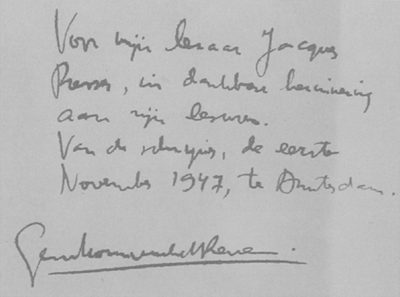 Voor mijn leraar Jacques
Presser, in dankbare herinnering
aan zijn lessen.
Van de schrijver, de eerste
November 1947, te Amsterdam.
Gerard Kornelis van het Reve.